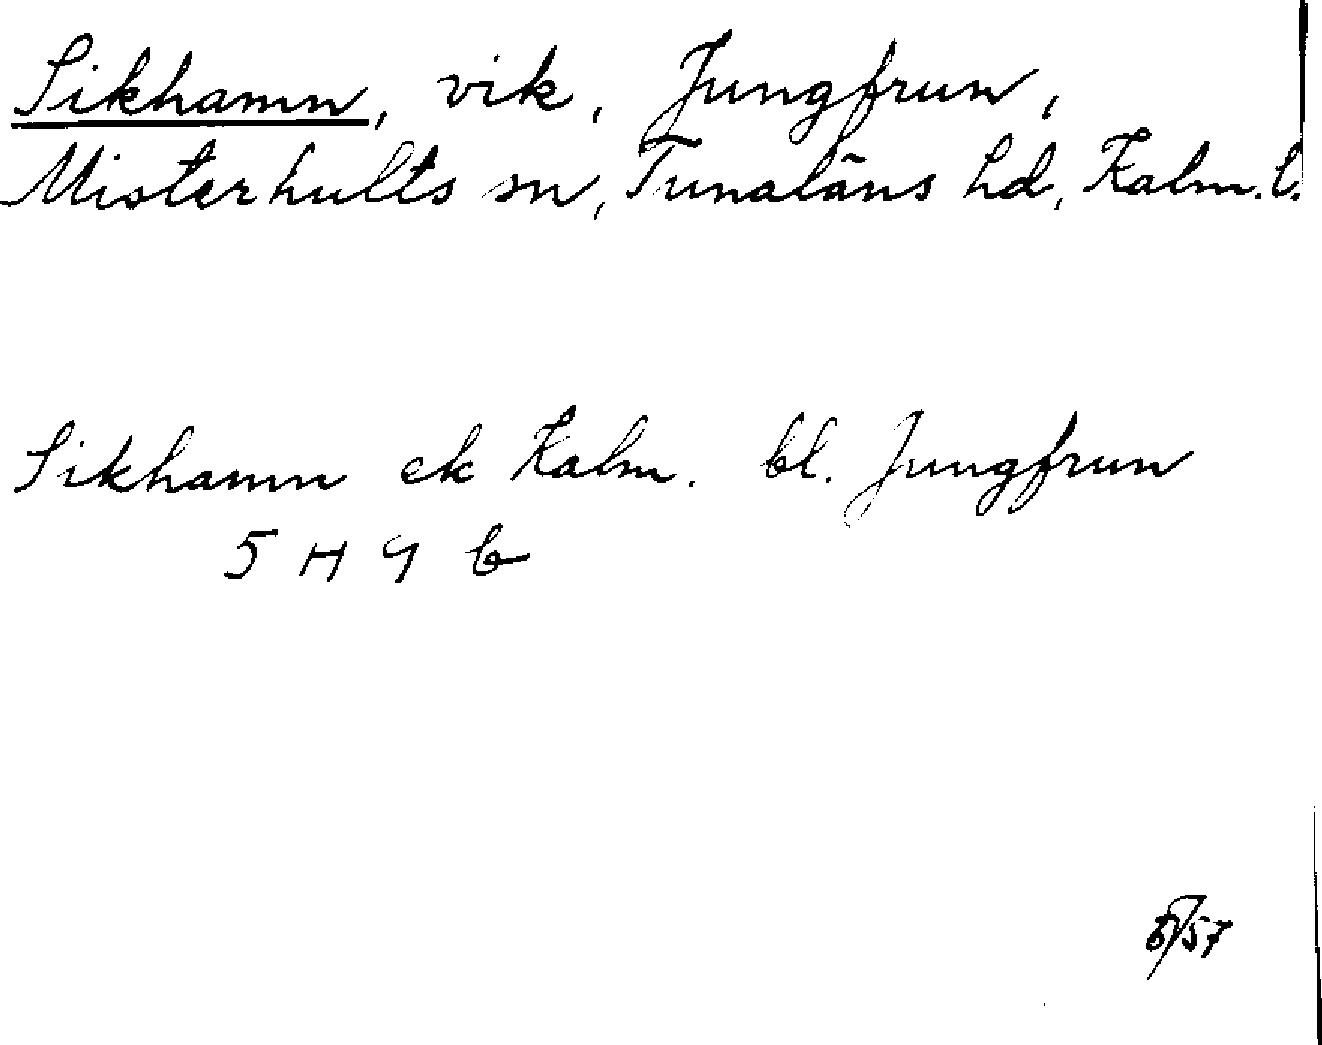 Sikhamn, vik, Jungfrun,
Misterhults sn, Tunaläns hd, Kalm. l.
Sikhamn ek Kalm. bl. Jungfrun
5 H 9 b